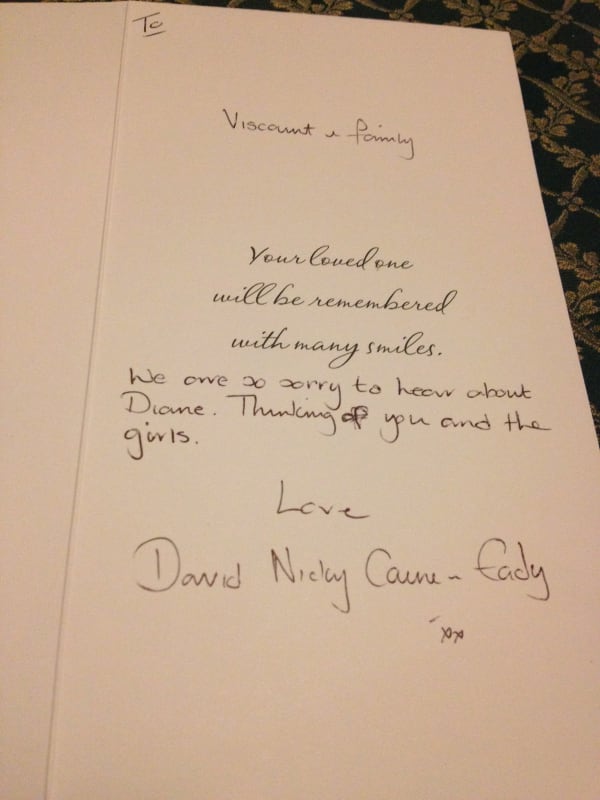 To
Viscount & family
Your loved one
will be remembered
with many smiles.
We are so sorry to hear about
Diane. Thinking of you and the
girls.
Love
David Nicky Eady
xx